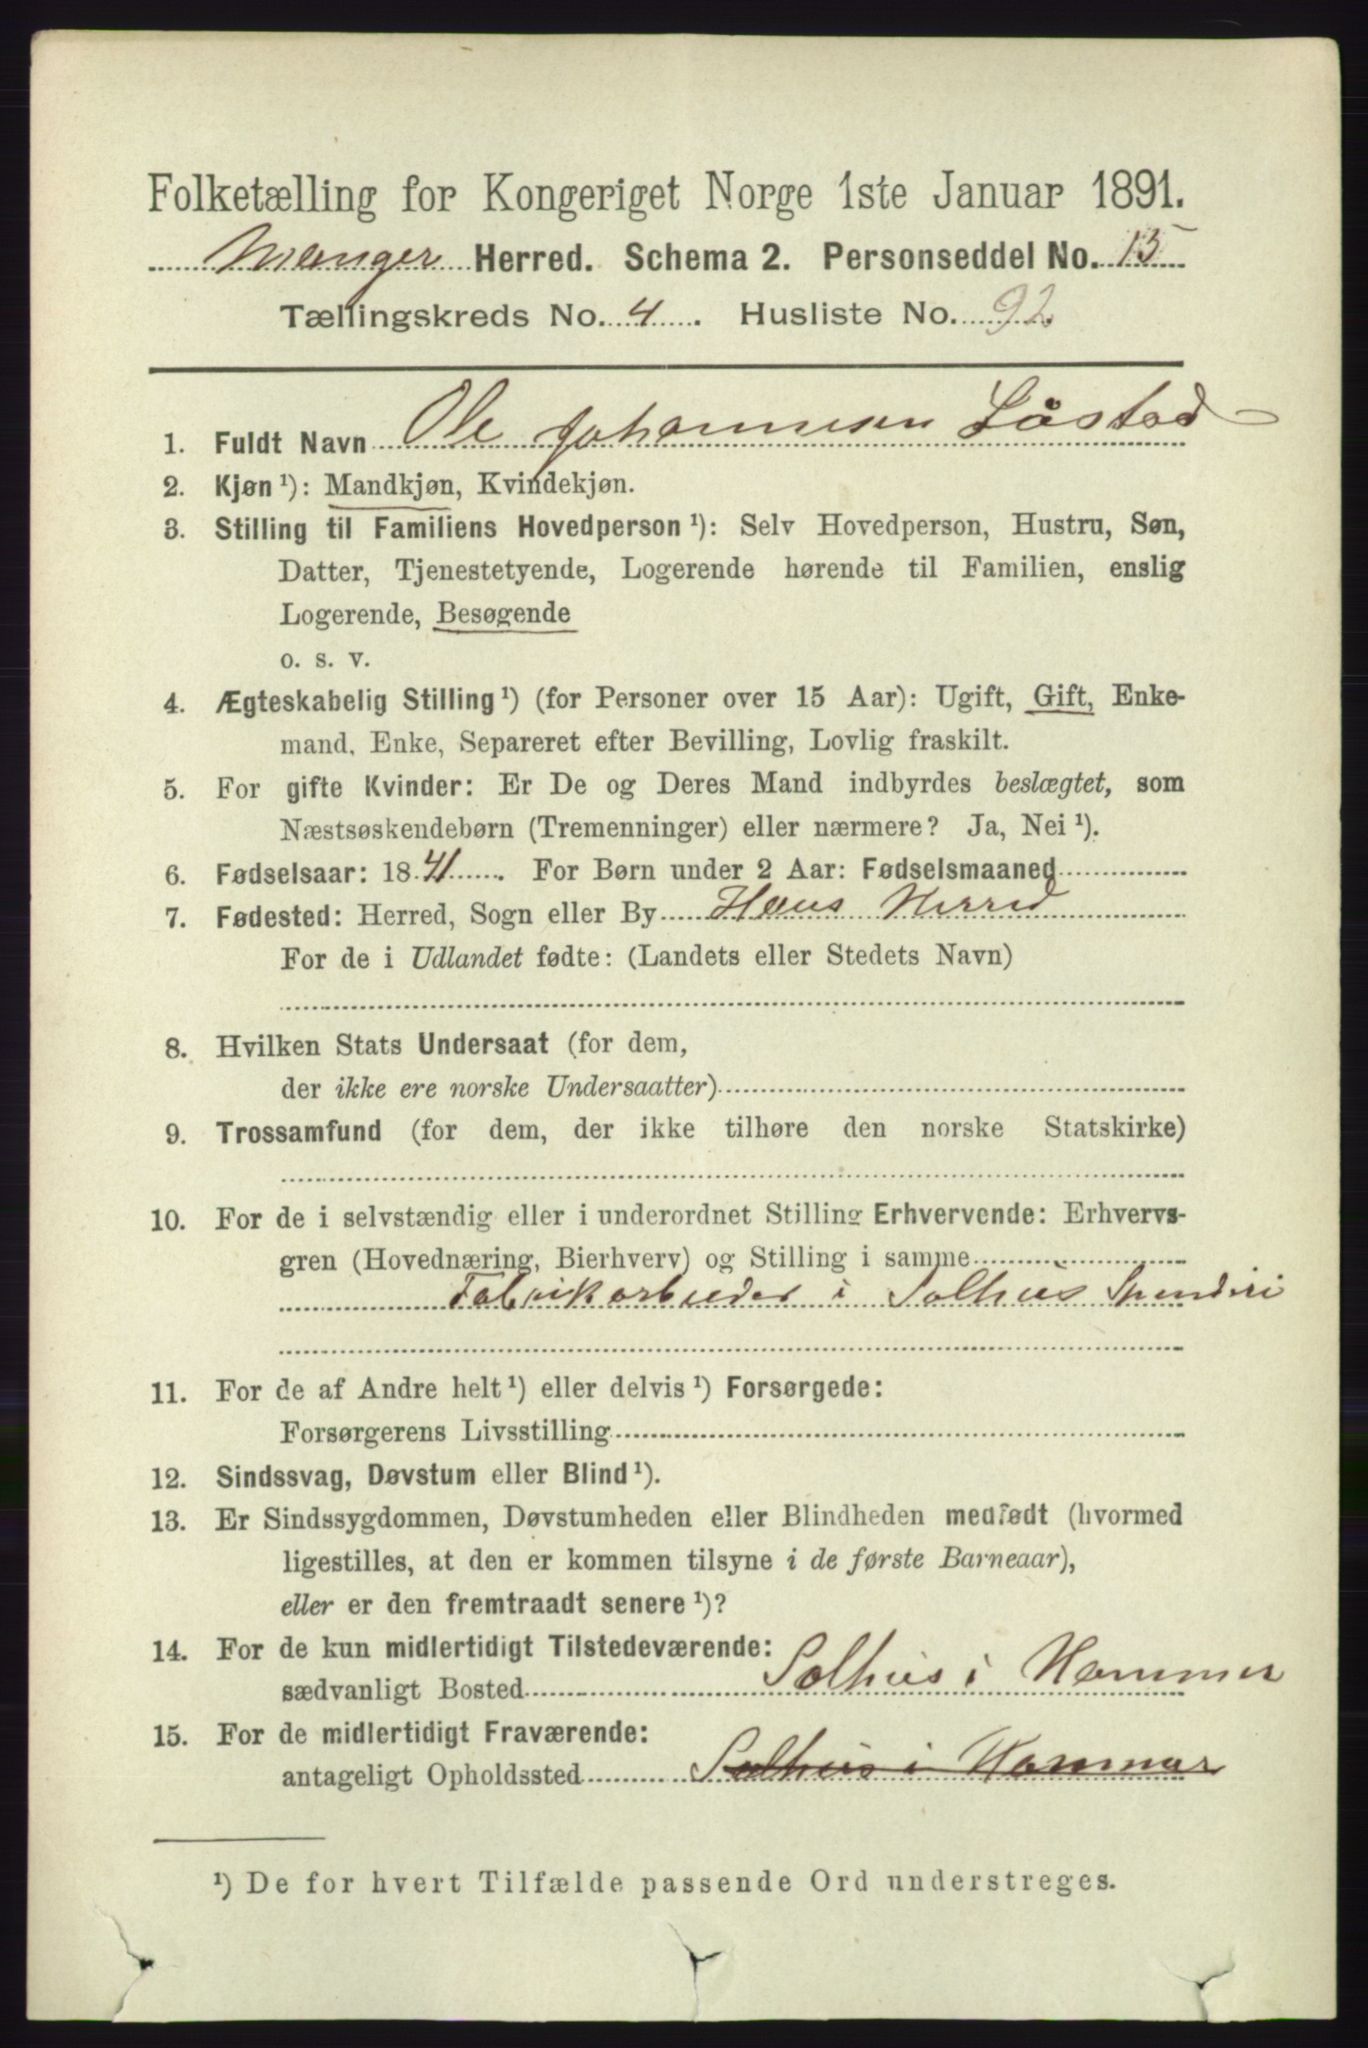 Folketælling for Kongeriget Norge 1ste Januar 1891.
Manger Herred. Schema 2. Personseddel No. 15
Tællingskreds No. 4. Husliste No. 92.
1. Fuldt Navn Ole Johannesen Låstad
2. Kjøn ¹): Mandkjøn, Kvindekjøn.
3. Stilling til Familiens Hovedperson ¹): Selv Hovedperson, Hustru, Søn,
Datter, Tjenestetyende, Logerende hørende til Familien, enslig
Logerende, Besøgende
o. s. v.
4. Ægteskabelig Stilling ¹) (for Personer over 15 Aar): Ugift, Gift, Enke-
mand, Enke, Separeret efter Bevilling, Lovlig fraskilt.
5. For gifte Kvinder: Er De og Deres Mand indbyrdes beslægtet, som
Næstsøskendebørn (Tremenninger) eller nærmere? Ja, Nei ¹).
6. Fødselsaar: 1841. For Børn under 2 Aar: Fødselsmaaned
7. Fødested: Herred, Sogn eller By Haus Herred
For de i Udlandet fødte: (Landets eller Stedets Navn)
8. Hvilken Stats Undersaat (for dem,
der ikke ere norske Undersaatter)
9. Trossamfund (for dem, der ikke tilhøre den norske Statskirke)
10. For de i selvstændig eller i underordnet Stilling Erhvervende: Erhvervs-
gren (Hovednæring, Bierhverv) og Stilling i samme
Fabrikarbeider i Salhus Spinderi
11. For de af Andre helt ¹) eller delvis ¹) Forsørgede:
Forsørgerens Livsstilling
12. Sindssvag, Døvstum eller Blind ¹).
13. Er Sindssygdommen, Døvstumheden eller Blindheden medfødt (hvormed
ligestilles, at den er kommen tilsyne i de første Barneaar),
eller er den fremtraadt senere ¹)?
14. For de kun midlertidigt Tilstedeværende:
sædvanligt Bosted Salhus i Hammer
15. For de midlertidigt Fraværende:
antageligt Opholdssted Salhus i Hammer
¹) De for hvert Tilfælde passende Ord understreges.